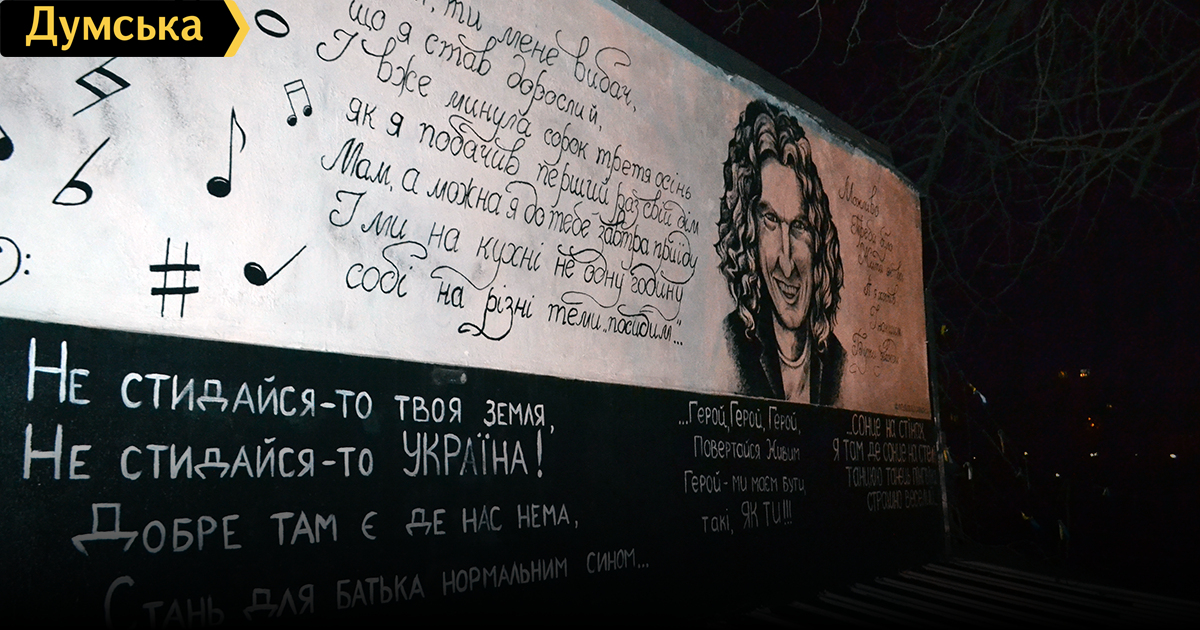 Думська
ти мене вибач,
що я став дорослий,
І вже минула сорок третя осінь
як я побачив перший раз свій дім
Мам, а можна я до тебе завтра приїду
І ми на кухні не одну годину
собі на різні теми "посидим"...
Можливо
Не стидайся-то твоя земля,
Не стидайся-то УКРАЇНА!
Добре там є де нас нема,
Стань для батька нормальним сином...
...Герой, Герой, Герой,
Повертайся живим
Герой - ми маєм бути
такі, ЯК ТИ!!!
...сонце на стінах
я там де сонце на
танцюю танець
страшно веселий